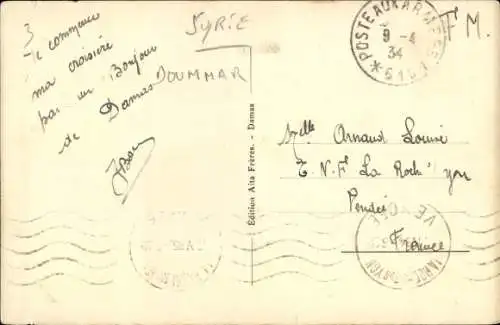 3
Je commence
ma croisière
par un Bonjour
de Damas
SYRIE
DOUMMAR
Edition Aita Frères. - Damas
POSTE AUX ARMEES
9 -4
34
F.M.
Melle Arnaud Louise
E.N.F. La Roch'Yon
Vendée
France